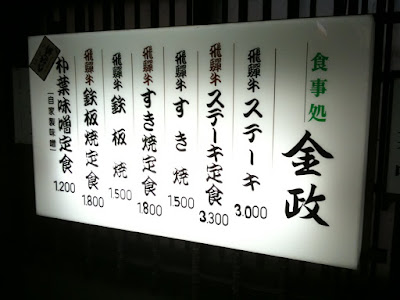 食事処
金政
飛騨牛 ステーキ 3.000
飛騨牛 ステーキ定食 3.300
飛騨牛 すき焼 1.500
飛騨牛 すき焼定食 1.800
飛騨牛 鉄板焼 1.500
飛騨牛 鉄板焼定食 1.800
朴葉味噌定食 1.200
(自家製味噌)